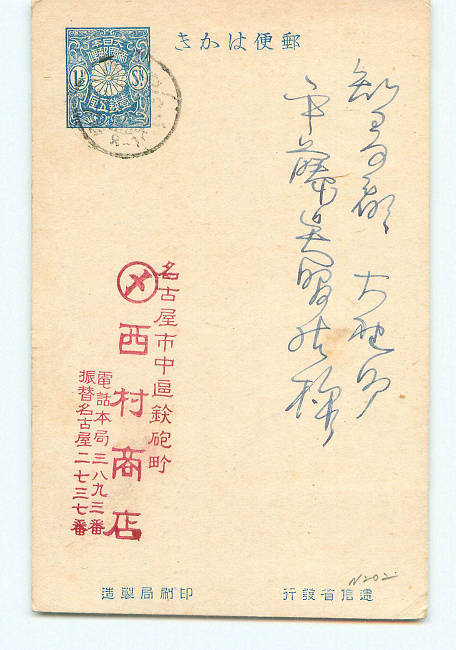 郵便はかき
大日本
帝國郵便
1½
Sn.
壹錢五厘
知多郡 大野町
様
名古屋市中區鉄砲町
西村商店
電話本局三八九三番
振替名古屋二七三七番
N202
遞信省發行
印刷局製造